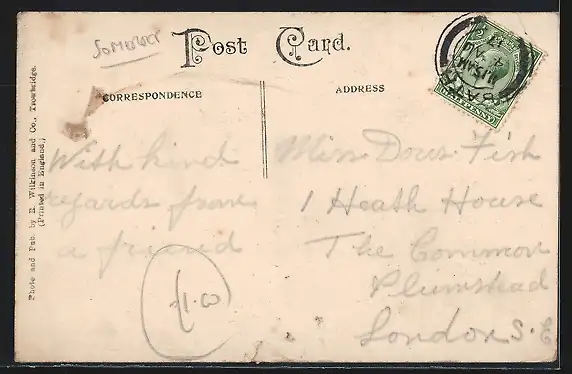 SOMERSET
Post Card.
CORRESPONDENCE
ADDRESS
Photo and Pub. by R. Wilkinson and Co., Trowbridge.
(Printed in England.)
With kind
regards from
a friend
£1.00
Miss Doris Fish
1 Heath House
The Common
Plumstead
London S.E
HALFPENNY